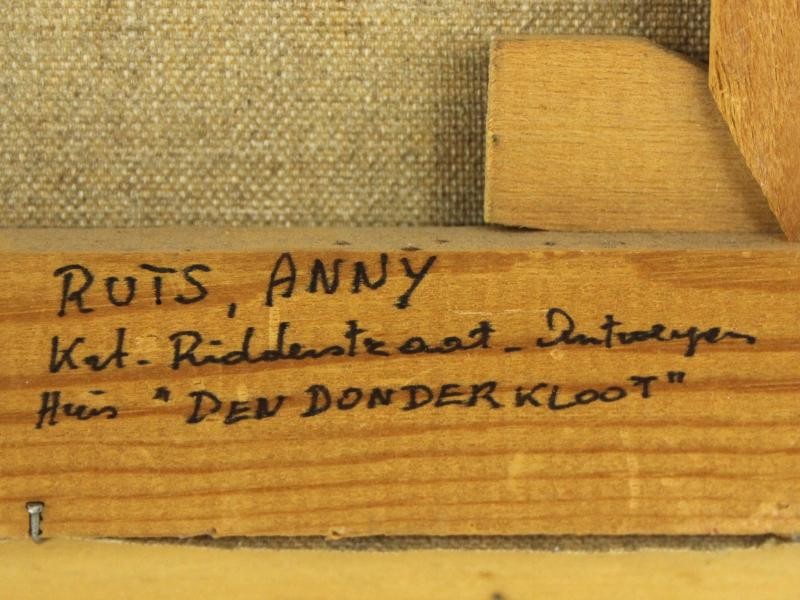 RUTS, ANNY
Krt. Ridderstraat - Antwerpen
Huis "DEN DONDERKLOOT"